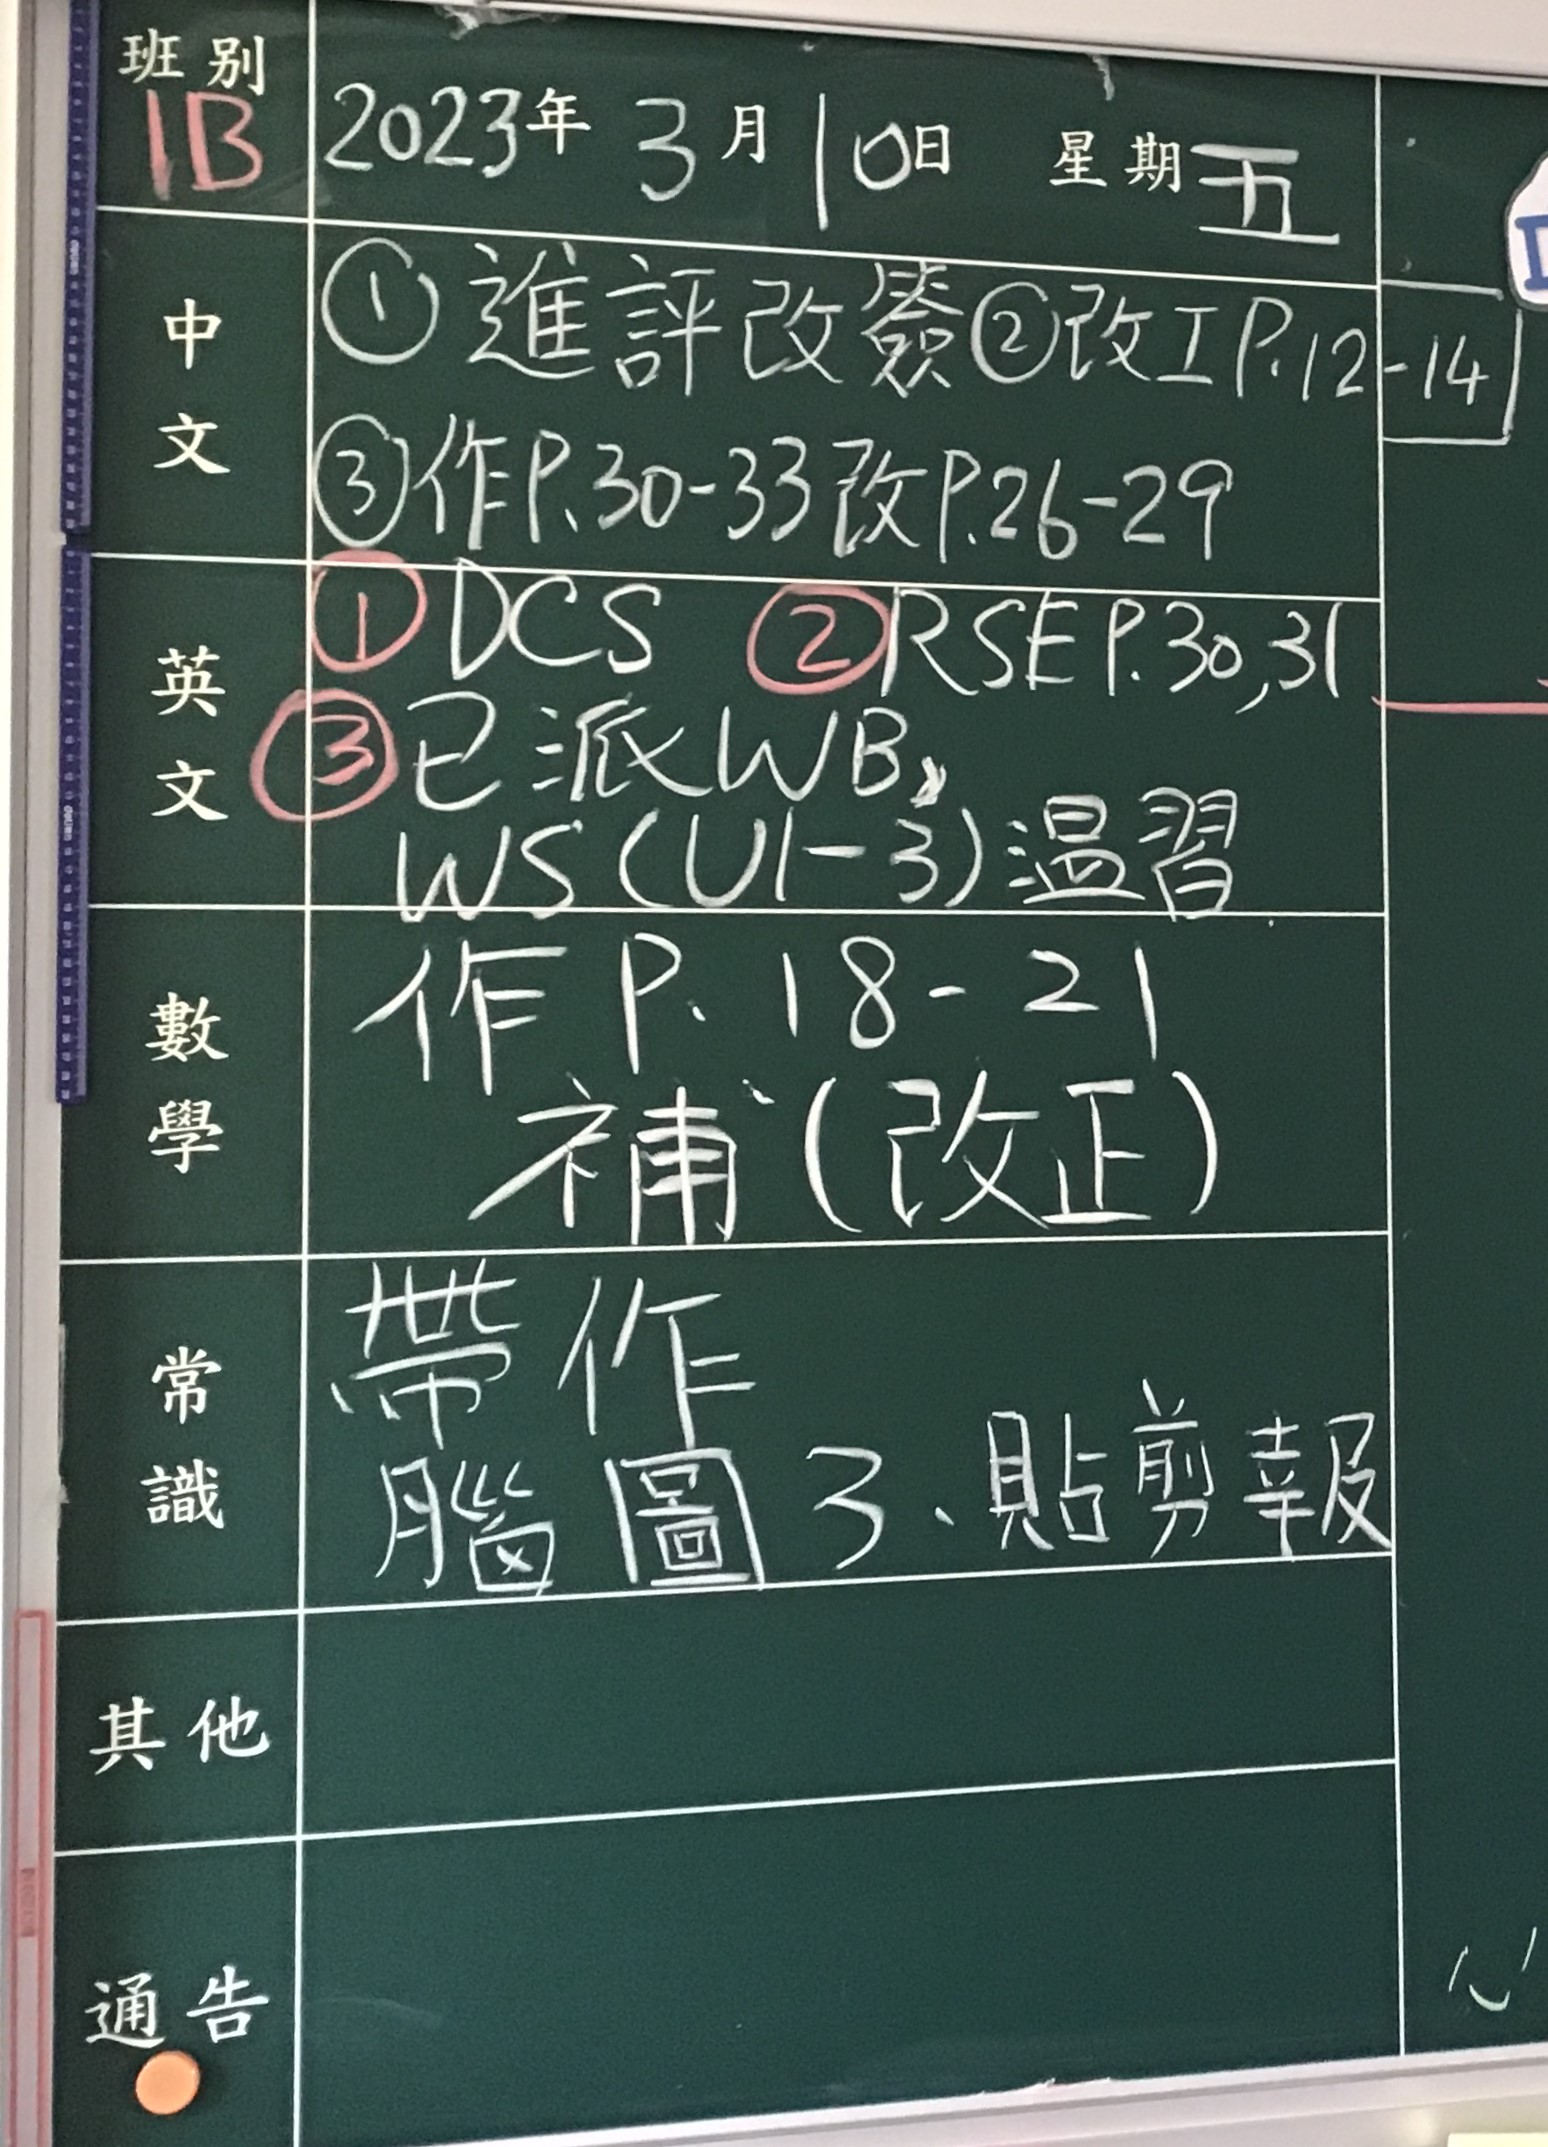 班別
1B
2023年 3月10日 星期五
中文
①進評改簽②改工P.12-14
③作P.30-33改P.26-29
英文
①DCS ②RSE P.30,31
③已派WB,
WS(U1-3)温習
數學
作P.18-21
補(改正)
常識
帶作
腦圖3、貼剪報
其他
通告